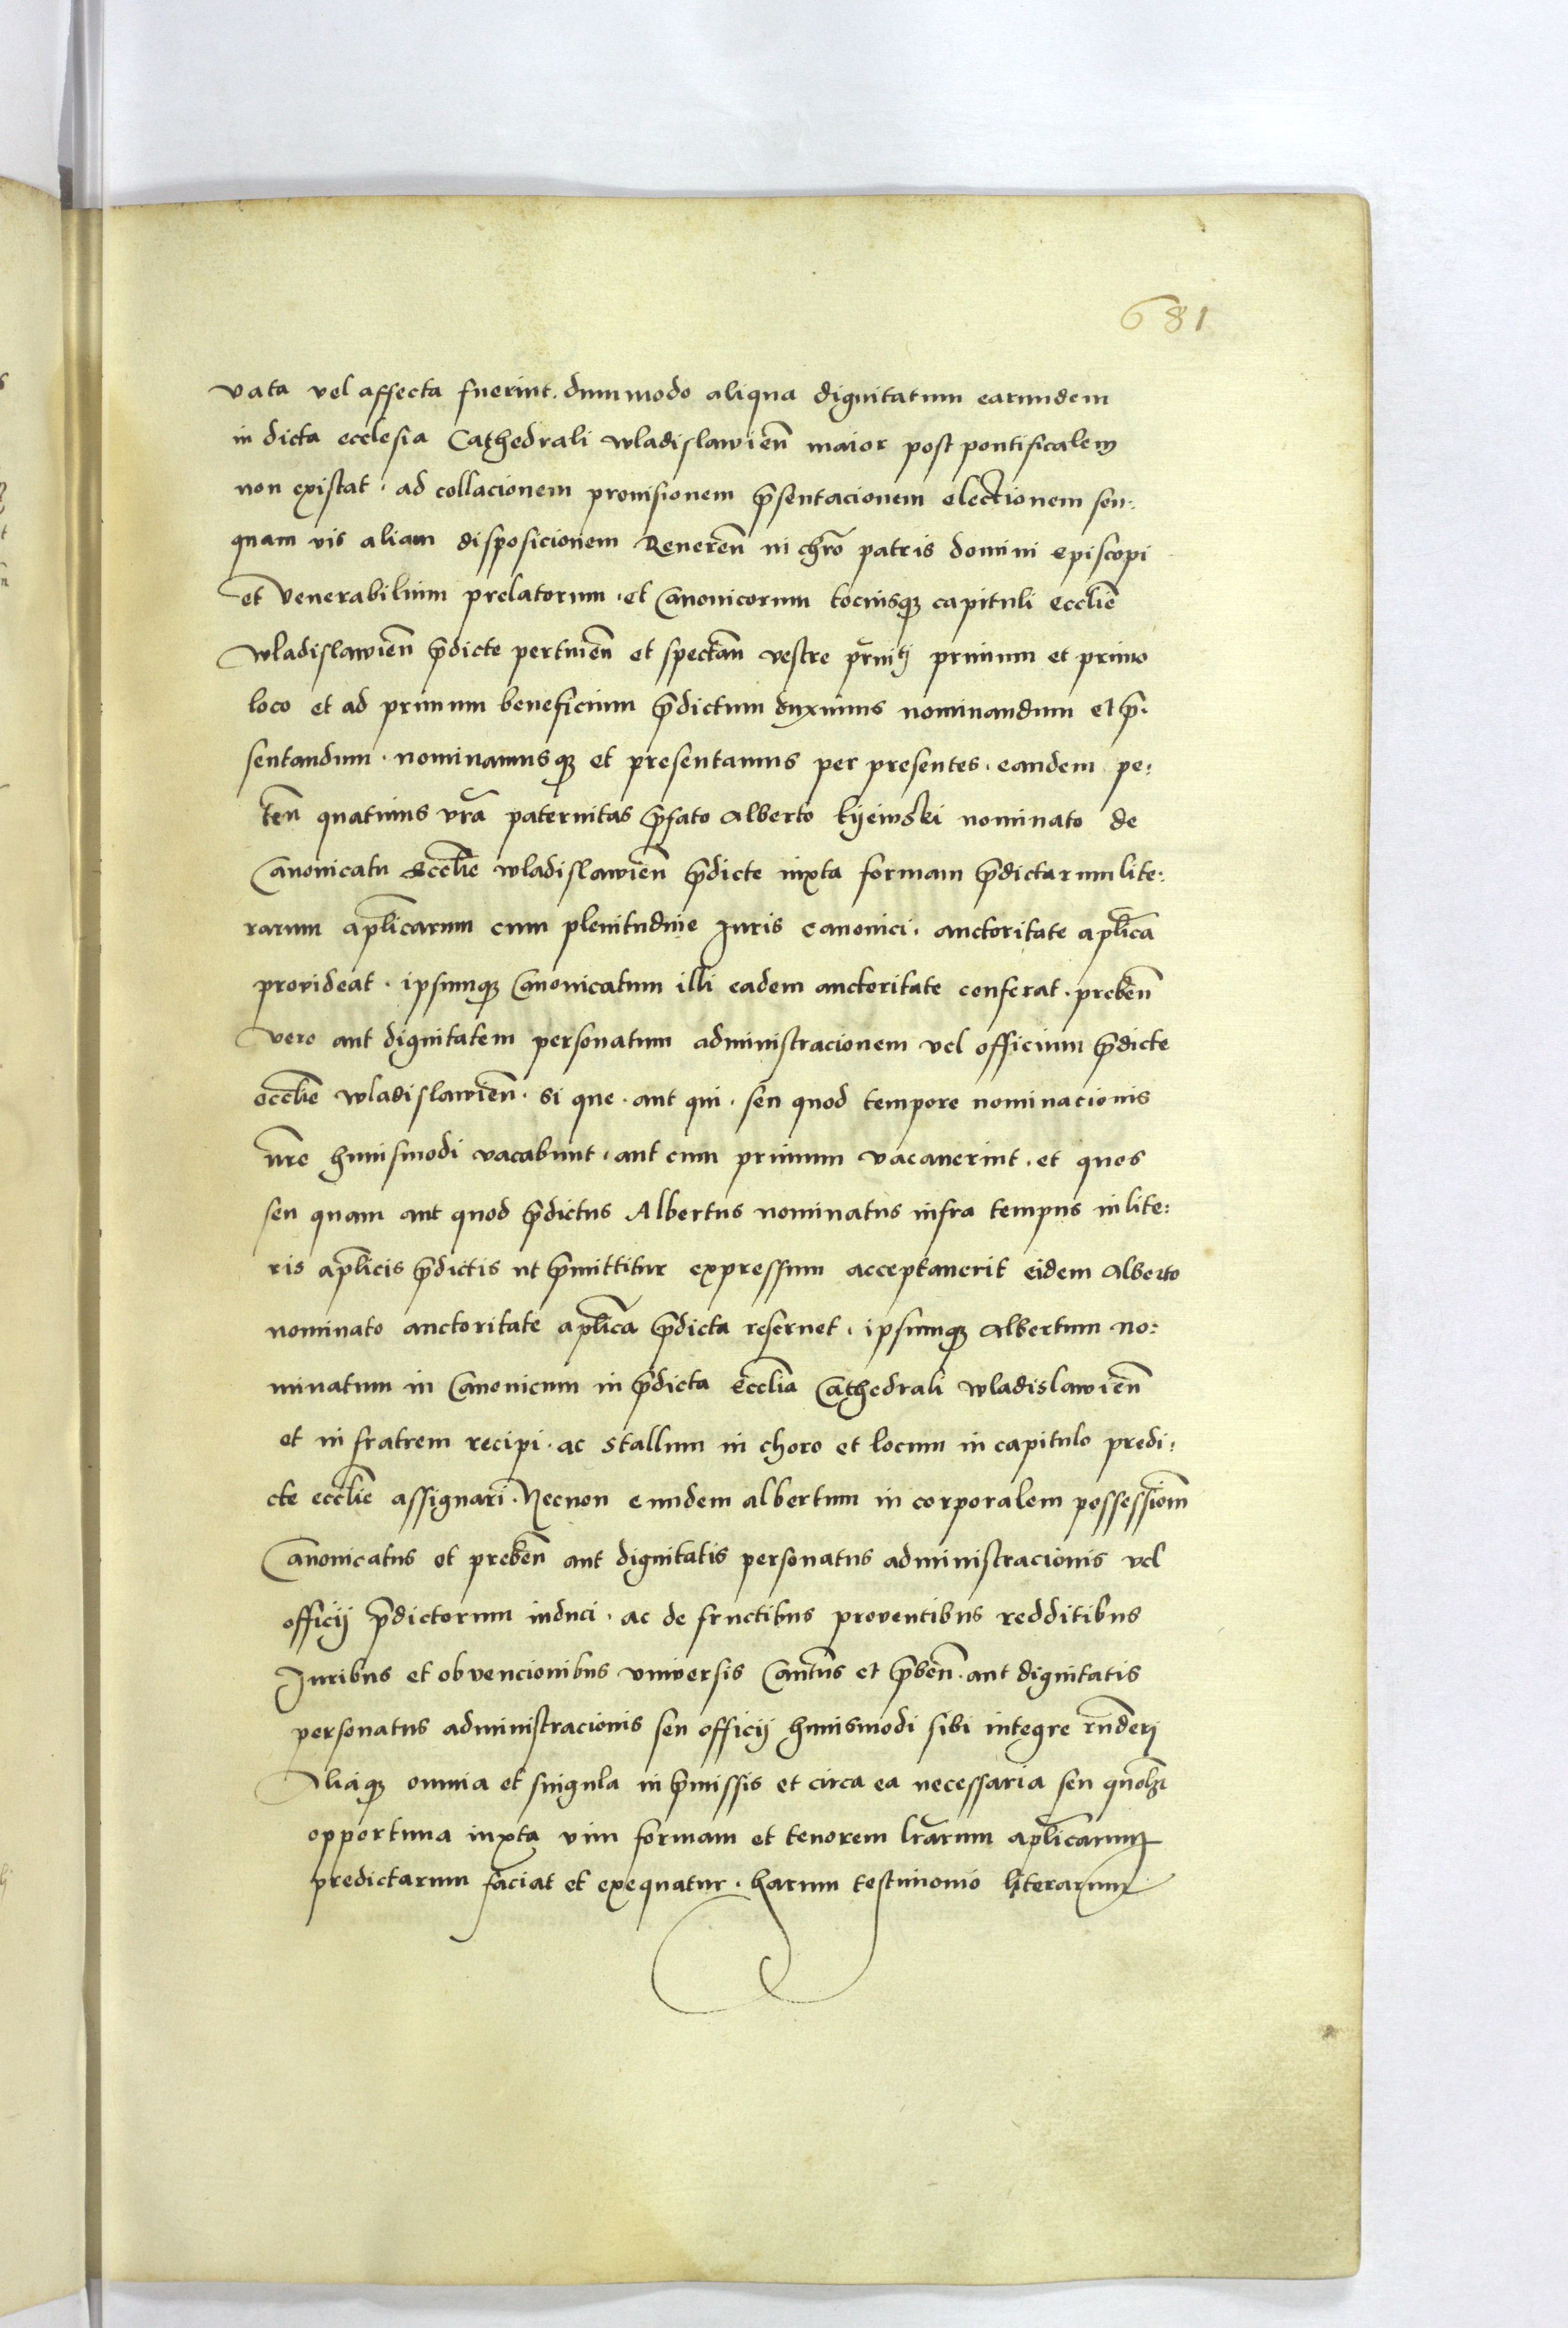 681
vata vel affecta fuerint. dummodo aliqua dignitatum earundem
in dicta ecclesia Cathedrali wladislawien̄ maior post pontificalem
non existat. ad collacionem prouisionem p̄sentacionem electionem seu:
quam vis aliam disposicionem Reueren̄ in chr̄o patris domini episcopi
et Venerabilium prelatorum. et Canonicorum tociusqꝫ capituli ecclie̅
Wladislawien̄ p̄dicte pertinen̄ et spectan̄ vestre pr̄nitj primum et primo
loco et ad primum beneficium p̄dictum duximus nominandum et p̄:
sentandum. nominamusqꝫ et presentamus per presentes. eandem pe:
ten̄ quatinus vr̄a paternitas p̄fato Alberto kijewski nominato de
Canonicatu Ecclie̅ wladislawien̄ p̄dicte iuxta formam p̄dictarum lite:
rarum ap̄licarum cum plenitudine Iuris canonici. auctoritate ap̄lica
prouideat. ipsumqꝫ Canonicatum illi eadem auctoritate conferat. preben̄
Vero aut dignitatem personatum administracionem vel officium p̄dicte
ecclie̅ wladislawien̄. si que. aut qui. seu quod tempore nominacionis
nr̄e huiusmodi vacabunt. aut cum primum vacauerint. et quos
seu quam aut quod p̄dictus Albertus nominatus infra tempus in lite:
ris ap̄licis p̄dictis ut p̄mittitur expressum acceptauerit eidem Alberto
nominato auctoritate ap̄lica p̄dicta reseruet. ipsumqꝫ Albertum no:
minatum in Canonicum in p̄dicta ecclia̅ Cathedrali wladislawien̄
et in fratrem recipi. ac stallum in choro et locum in capitulo predi:
cte ecclie̅ assignari. Necnon eundem albertum in corporalem possessiom̄
Canonicatus et preben̄ aut dignitatis personatus administracionis vel
officij p̄dictorum induci. ac de fructibus prouentibus redditibus
Iuribus et obvencionibus vniversis Can̄tus et p̄ben̄. aut dignitatis
personatus administracionis seu officij huiusmodi sibi integre rn̄derj
Aliaqꝫ omnia et singula in p̄missis et circa ea necessaria seu quōlꝫt
opportuna iuxta vim formam et tenorem lr̄arum ap̄licarum
predictarum faciat et exequatur. harum testimonio literarum